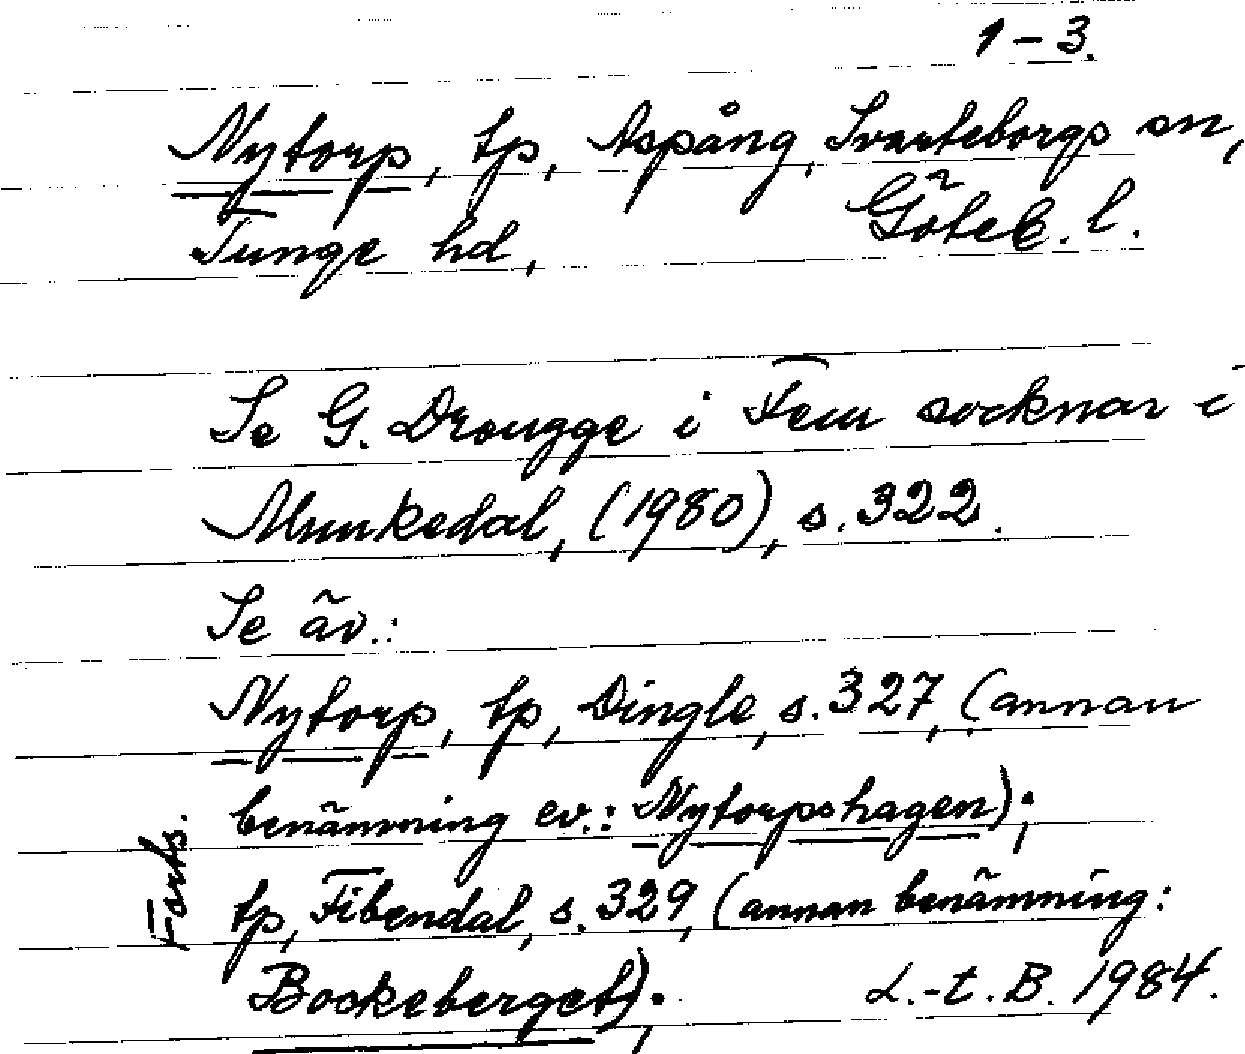 1-3.
Nytorp, tp, Aspång, Svarteborgs sn,
Tunge hd, Göteb. l.
Se G. Drougge i Fem socknar i
Munkedal, (1980), s. 322.
Se äv.:
Nytorp, tp, Dingle, s. 327, (annan
benämning ev.: Nytorpshagen);
tp, Fibendal, s. 329, (annan benämning:
Bockeberget);
Forts.
L.-t. B. 1984.